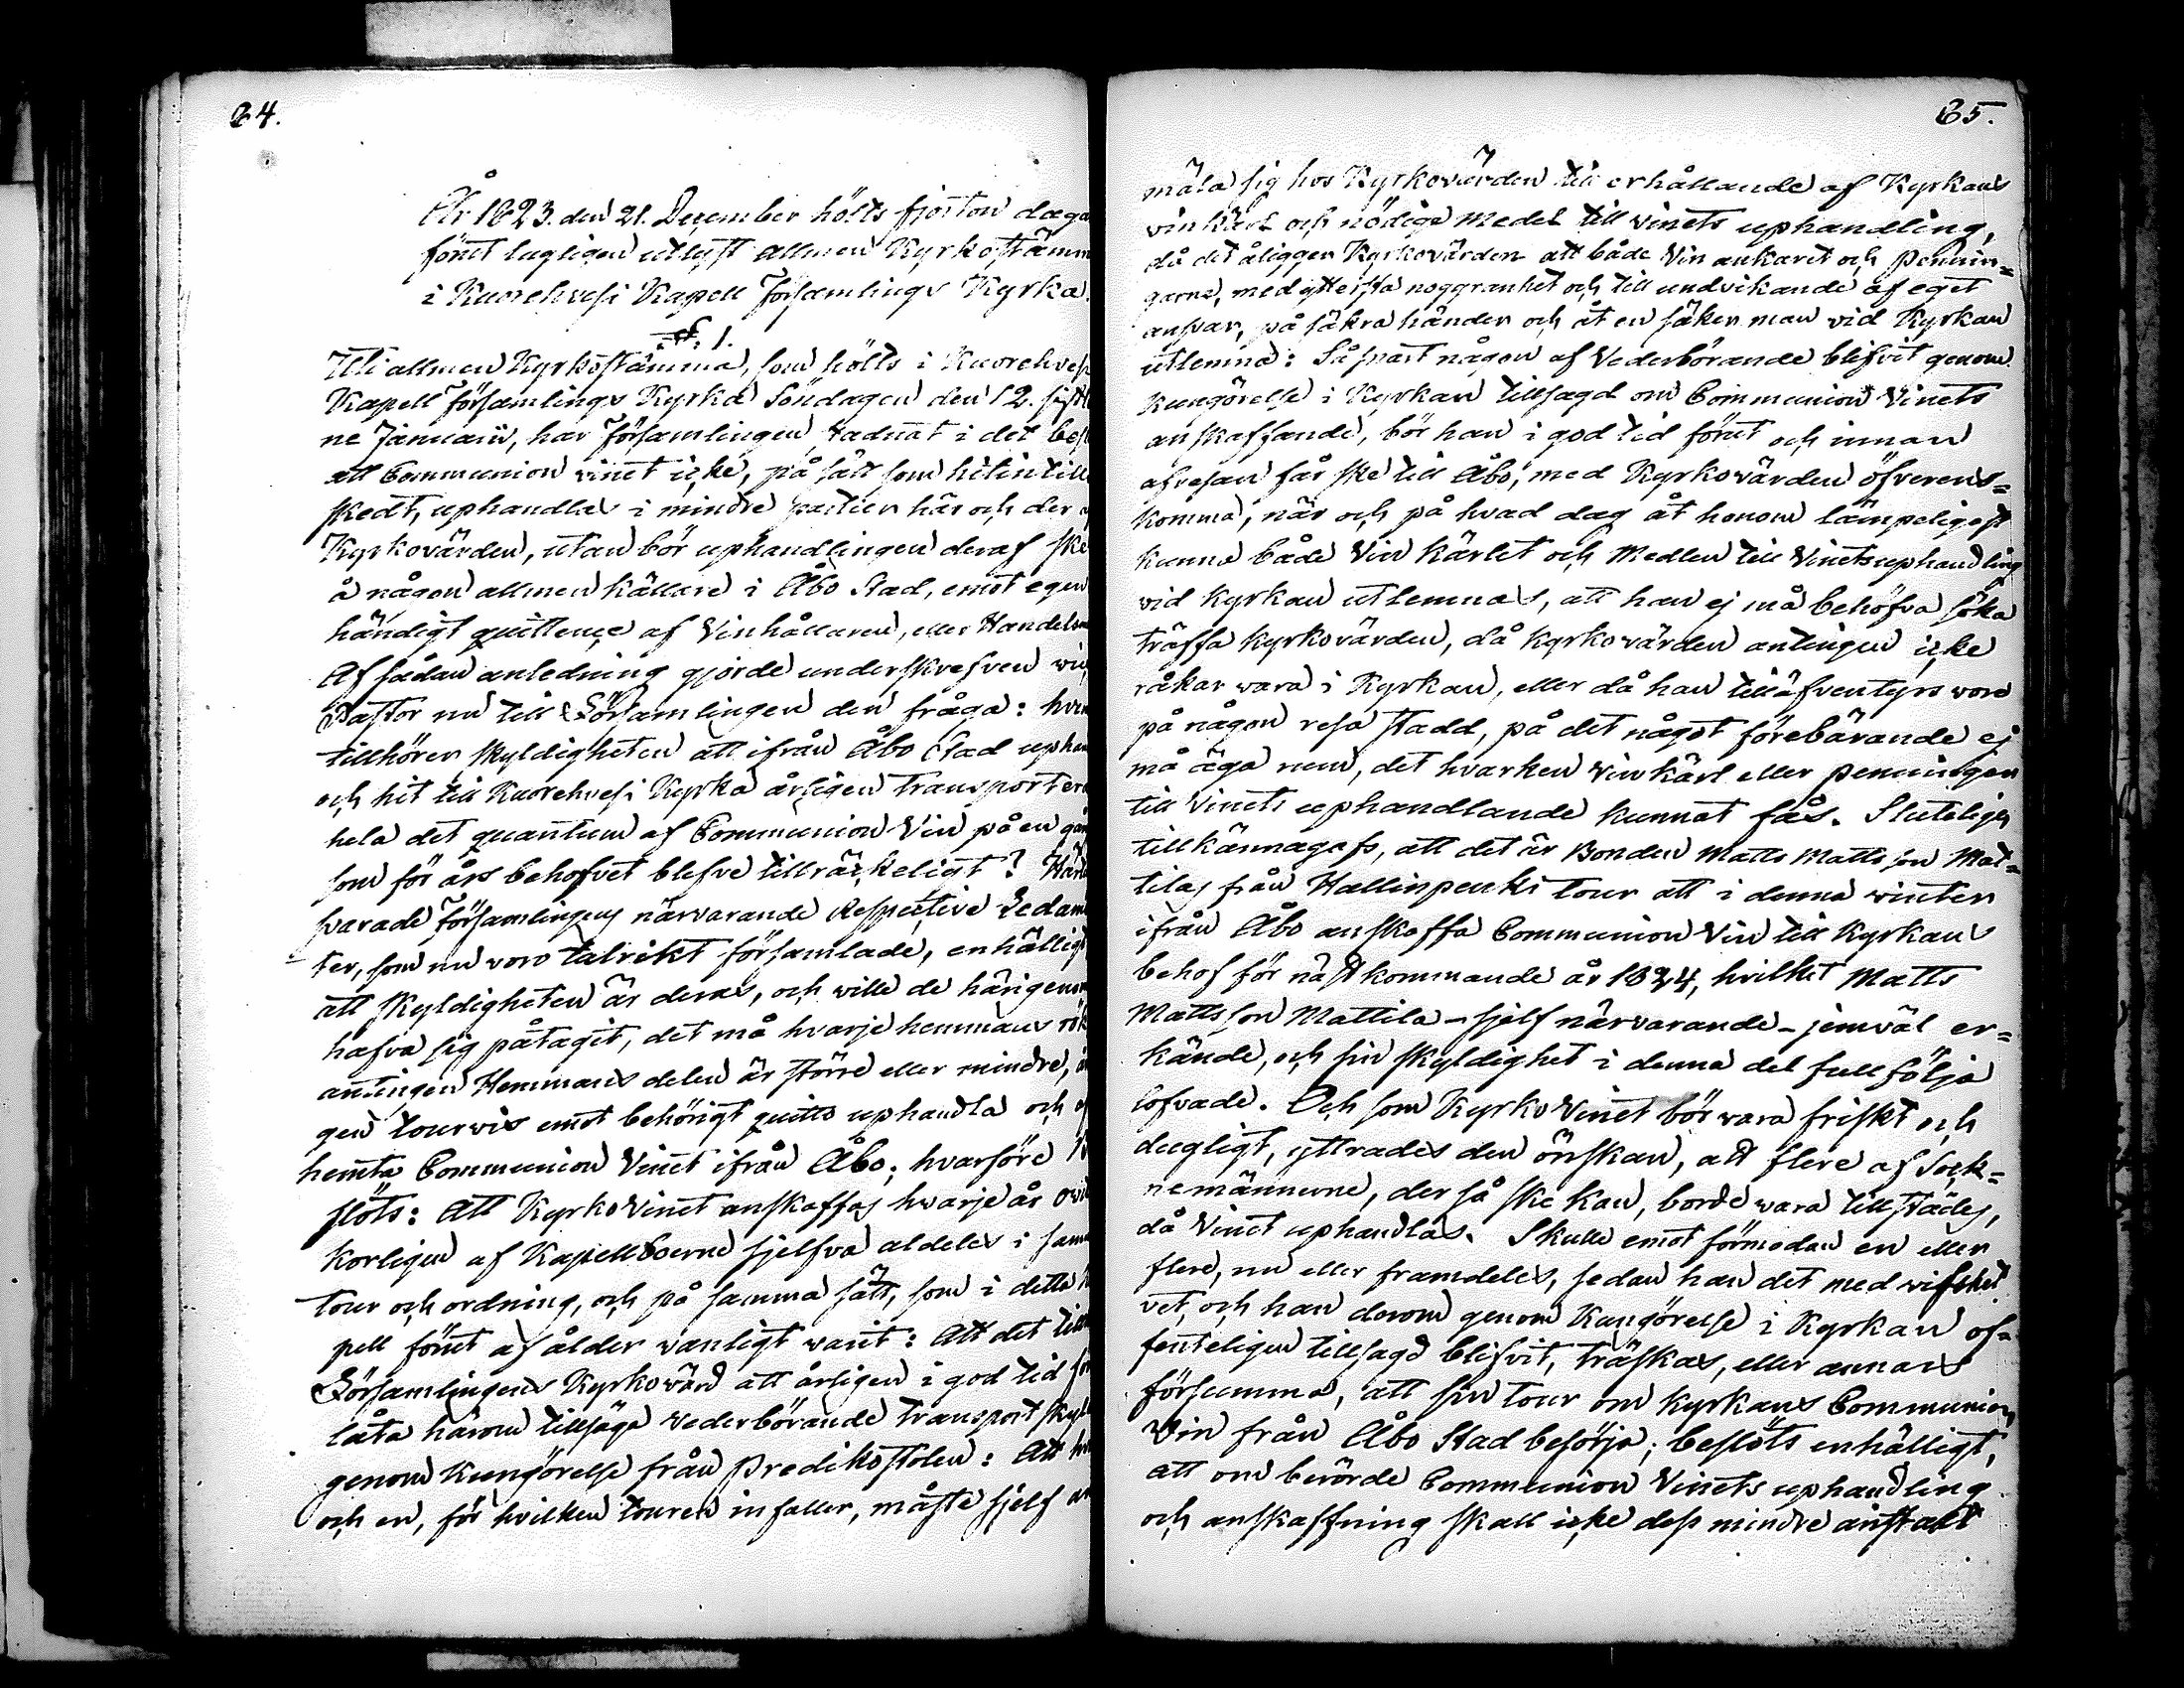 64.
År 1823. den 21. December hölts fjorton daga
förut lagligen utlyst allmen Kyrkostämm
i Kuorehvesi Kapell Församlings Kyrka.
§. 1.
Uti allmen Kyrkostämma, som hölts i Kuorehves
Kapell Församlings Kyrka Söndagen den 12. sistl
ne Januarii, har Församlingen stadnat i det besl
att Communion vinet icke, på sätt som hitintill
skedt, uphandlas i mindre partier här och der a
Kyrkovärden, utan bör uphandlingen deraf ske
å någon allmen källare i Åbo Stad, emot egen
händigt quittence af Vinhållaren, eller Handelsm
Af sådan anledning gjorde underskrefven vice
Pastor nu till Församlingen den fråga: hvem
tillhörer skyldigheten att ifrån Åbo Stad uphan
och hit till Kuorehvesi Kyrka årligen transportera
hela det quantum af Communion Vin på en gån
som för års behofvet blefve tillräckeligt? Härå
svarade Församlingens närvarande Respective Ledam
ter, som nu voro talrikt församlade, enhälligt
att skyldigheten är deras, och wille de härigenom
hafva sig påtagit, det må hvarje hemmans rök
antingen Hemmans delen är större eller mindre, å
gen tourvis emot behörigt quitto uphandla och af
hemta Communion Vinet ifrån Åbo; hvarföre be
slöts: Att Kyrko Vinet anskaffas hwarje år ovil
korligen af Kapellboerne sjelfva aldeles i samma
tour och ordning, och på samma sätt, som i detta Ka
pell förut af ålder vanligt varit: Att det till
Församlingens Kyrkovärd att årligen i god tid för
låta härom tillsäga vederbörande transport skyld
genom Kungörelse från Predikostolen: Att hvar
och en, för hvilken touren infaller, måste sjelf an
65.
mäla sig hos Kyrkovärden till erhållande af Kyrkans
vinkärl och nödige Medel till vinets uphandling,
då det åligger Kyrkovärden att både Vin ankaret och Pennin=
garne, med yttersta noggranhet och till undvikande af eget
ansvar, på säkra händer och åt en säker man vid Kyrkan
utlemna: Så snart någon af Vederbörande blifvit genom
Kungörelse i Kyrkan tillsagd om Communion Vinets
anskaffande, bör han i god tid förut och innan
afresan får ske till Åbo, med Kyrkovärden öfverens=
komma, när och på hvad dag åt honom lämpeligast
kunna både Vin kärlet och Medlen till Vinets uphandling
vid kyrkan utlemnas, att han ej må behöfva söka
träffa kyrkovärden, då kyrkovärden antingen icke
råkar vara i Kyrkan, eller då han till äfventyrs vore
på någon resa stadd, på det något förebärande ej
må äga rum, det hvarken vinkärl eller penningar
till Vinets uphandlande kunnat fås. Sluteligen
tillkännagafs, att det är Bonden Matts Mattsson Mat=
tilas från Hallinpenki tour att i denna winter
ifrån Åbo anskaffa Communion Vin till kyrkans
behof för nästkommande år 1824, hvilket Matts
Mattsson Mattila - sjelf närvarande - jemväl er=
kände, och sin skyldighet i denna del fullfölja
lofvade. Och som Kyrko Vinet bör vara friskt och
dugligt, yttrades den önskan, att flere af Sock=
nemännerne, der så ske kan, borde vara tillstädes,
då Vinet uphandlas. Skulle emot förmodan en eller
flere, nu eller framdeles, sedan han det med visshet
vet, och han derom genom Kungörelse i Kyrkan of=
fenteligen tillsagd blifvit, träskas, eller annars
försumma, att sin tour om kyrkans Communion
Vin från Åbo Stad besörja; beslöts enhälligt,
att om berörde Communion Vinets uphandling
och anskaffning skall icke dess mindre anstalt